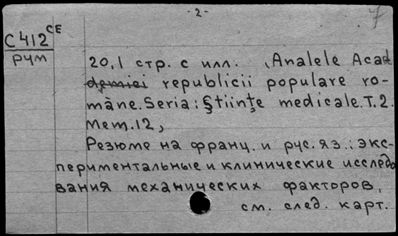 - 2 -
7
С 412 СЕ
рум
20,1 стр. с илл. (Analele Acad
demiei republicii populare ro-
mâne. Seria: Ştiinţe medicale. T.2.
Mem.12,
Резюме на франц. и рус. яз.: экс-
периментальные и клинические исследо
вания механических факторов,
см. след. карт.